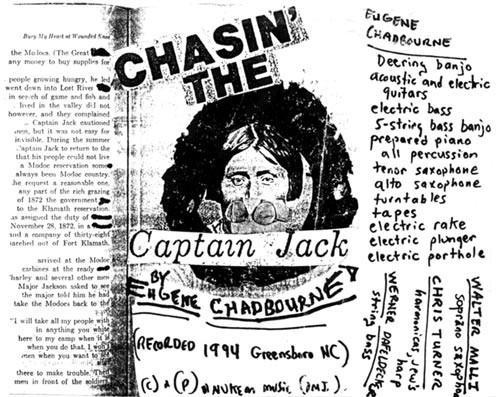 Bury My Heart at Wounded Knee
the Modocs. (The Great
any money to buy supplies for
people growing hungry, he led
went down into Lost River
in search of game and fish and
lived in the valley did not
however, and they complained
Captain Jack cautioned
men, but it was not easy for
invisible. During the summer
Captain Jack to return to the
that his people could not live
a Modoc reservation some
always been Modoc country.
he request a reasonable one,
any part of the rich grazing
of 1872 the government
to the Klamath reservation.
as assigned the duty of
November 28, 1872, in a
and a company of thirty-eight
marched out of Fort Klamath.
arrived at the Modoc
carbines at the ready
harley and several other men
Major Jackson asked to see
the major told him he had
take the Modocs back to the
"I will take all my people with
in anything you white
here to my camp when it is
when you do that. I won't
men when you want to
there to make trouble." Then
men in front of the soldiers
CHASIN'
THE
Captain Jack
BY
EUGENE CHADBOURNE
(RECORDED 1994 Greensboro NC)
(C) & (P) Nukean music (BMI).
EUGENE
CHADBOURNE
Deering banjo
acoustic and electric
guitars
electric bass
5-string bass banjo
prepared piano
all percussion
tenor saxophone
alto saxophone
turntables
tapes
electric rake
electric plunger
electric porthole
WALTER MALLI
soprano saxophone
CHRIS TURNER
harmonicas, jew's
harp
WERNER DAFELDECKER
string bass